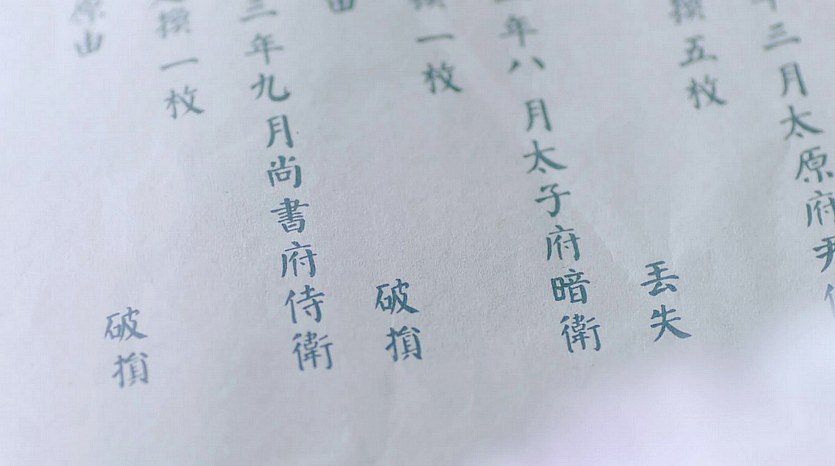 三月太原府尹
換五枚
丟失
年八月太子府暗衛
換一枚
由
破損
三年九月尚書府侍衛
換一枚
原由
破損